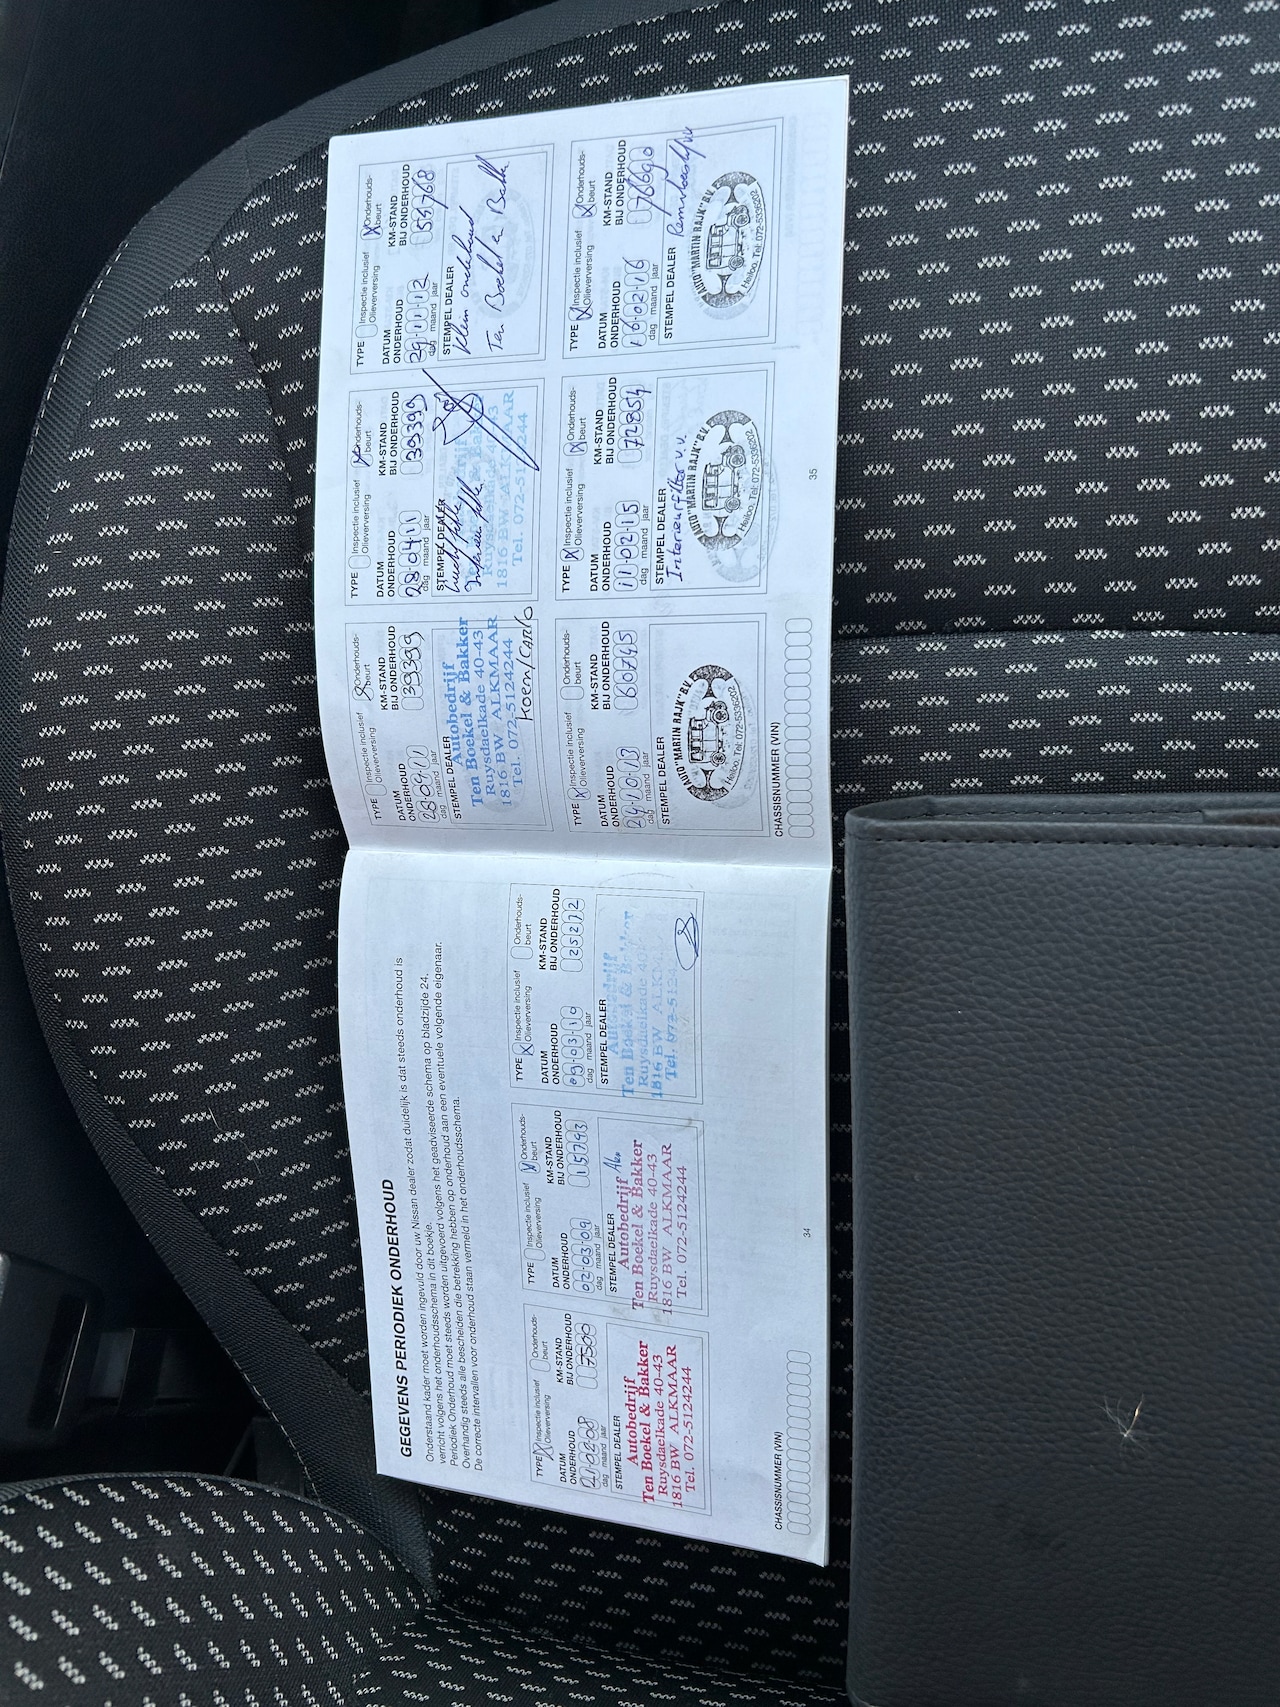 GEGEVENS PERIODIEK ONDERHOUD
Onderstaand kader moet worden ingevuld door uw Nissan dealer zodat duidelijk is dat steeds onderhoud is
verricht volgens het onderhoudsschema in dit boekje.
Periodiek Onderhoud moet steeds worden uitgevoerd volgens het geadviseerde schema op bladzijde 24.
Overhandig steeds alle bescheiden die betrekking hebben op onderhoud aan een eventuele volgende eigenaar.
De correcte intervallen voor onderhoud staan vermeld in het onderhoudsschema.
TYPE X Inspectie inclusief Olieverversing Onderhouds-beurt
DATUM ONDERHOUD
KM-STAND BIJ ONDERHOUD
7500
dag maand jaar
STEMPEL DEALER
Autobedrijf
Ten Boekel & Bakker
Ruysdaelkade 40-43
1816 BW ALKMAAR
Tel. 072-5124244
TYPE Inspectie inclusief Olieverversing X Onderhouds-beurt
DATUM ONDERHOUD
02-03-09
KM-STAND BIJ ONDERHOUD
15793
dag maand jaar
STEMPEL DEALER
Autobedrijf
Ten Boekel & Bakker
Ruysdaelkade 40-43
1816 BW ALKMAAR
Tel. 072-5124244
TYPE X Inspectie inclusief Olieverversing Onderhouds-beurt
DATUM ONDERHOUD
KM-STAND BIJ ONDERHOUD
25272
dag maand jaar
STEMPEL DEALER
Autobedrijf
Ten Boekel & Bakker
Ruysdaelkade 40
1816 BW ALK
Tel. 072-5124
CHASSISNUMMER (VIN)
34
TYPE Inspectie inclusief Olieverversing X Onderhouds-beurt
DATUM ONDERHOUD
28-04-11
KM-STAND BIJ ONDERHOUD
39399
dag maand jaar
STEMPEL DEALER
Autobedrijf
Ten Boekel & Bakker
Ruysdaelkade 40-43
1816 BW ALKMAAR
Tel. 072-5124244
Koem/Carlo
TYPE Inspectie inclusief Olieverversing X Onderhouds-beurt
DATUM ONDERHOUD
28-04-11
KM-STAND BIJ ONDERHOUD
39399
dag maand jaar
STEMPEL DEALER
1816 BW ALKMAAR
Tel. 072-5124244
TYPE Inspectie inclusief Olieverversing X Onderhouds-beurt
DATUM ONDERHOUD
29-11-12
KM-STAND BIJ ONDERHOUD
55768
dag maand jaar
STEMPEL DEALER
Klein onderhoud
Ten Boekel en Bakker
TYPE X Inspectie inclusief Olieverversing Onderhouds-beurt
DATUM ONDERHOUD
24-10-13
KM-STAND BIJ ONDERHOUD
60745
dag maand jaar
STEMPEL DEALER
AUTO "MARTIN RAJK" B.V.
Heiloo, Tel: 072-5336202
TYPE X Inspectie inclusief Olieverversing X Onderhouds-beurt
DATUM ONDERHOUD
11-02-15
KM-STAND BIJ ONDERHOUD
72854
dag maand jaar
STEMPEL DEALER
Interieurfilter v.v.
AUTO "MARTIN RAJK" B.V.
Heiloo, Tel: 072-5336202
TYPE X Inspectie inclusief Olieverversing X Onderhouds-beurt
DATUM ONDERHOUD
16-02-16
KM-STAND BIJ ONDERHOUD
76690
dag maand jaar
STEMPEL DEALER
Remvloeistof vv
AUTO "MARTIN RAJK" B.V.
Heiloo, Tel: 072-5336202
CHASSISNUMMER (VIN)
35